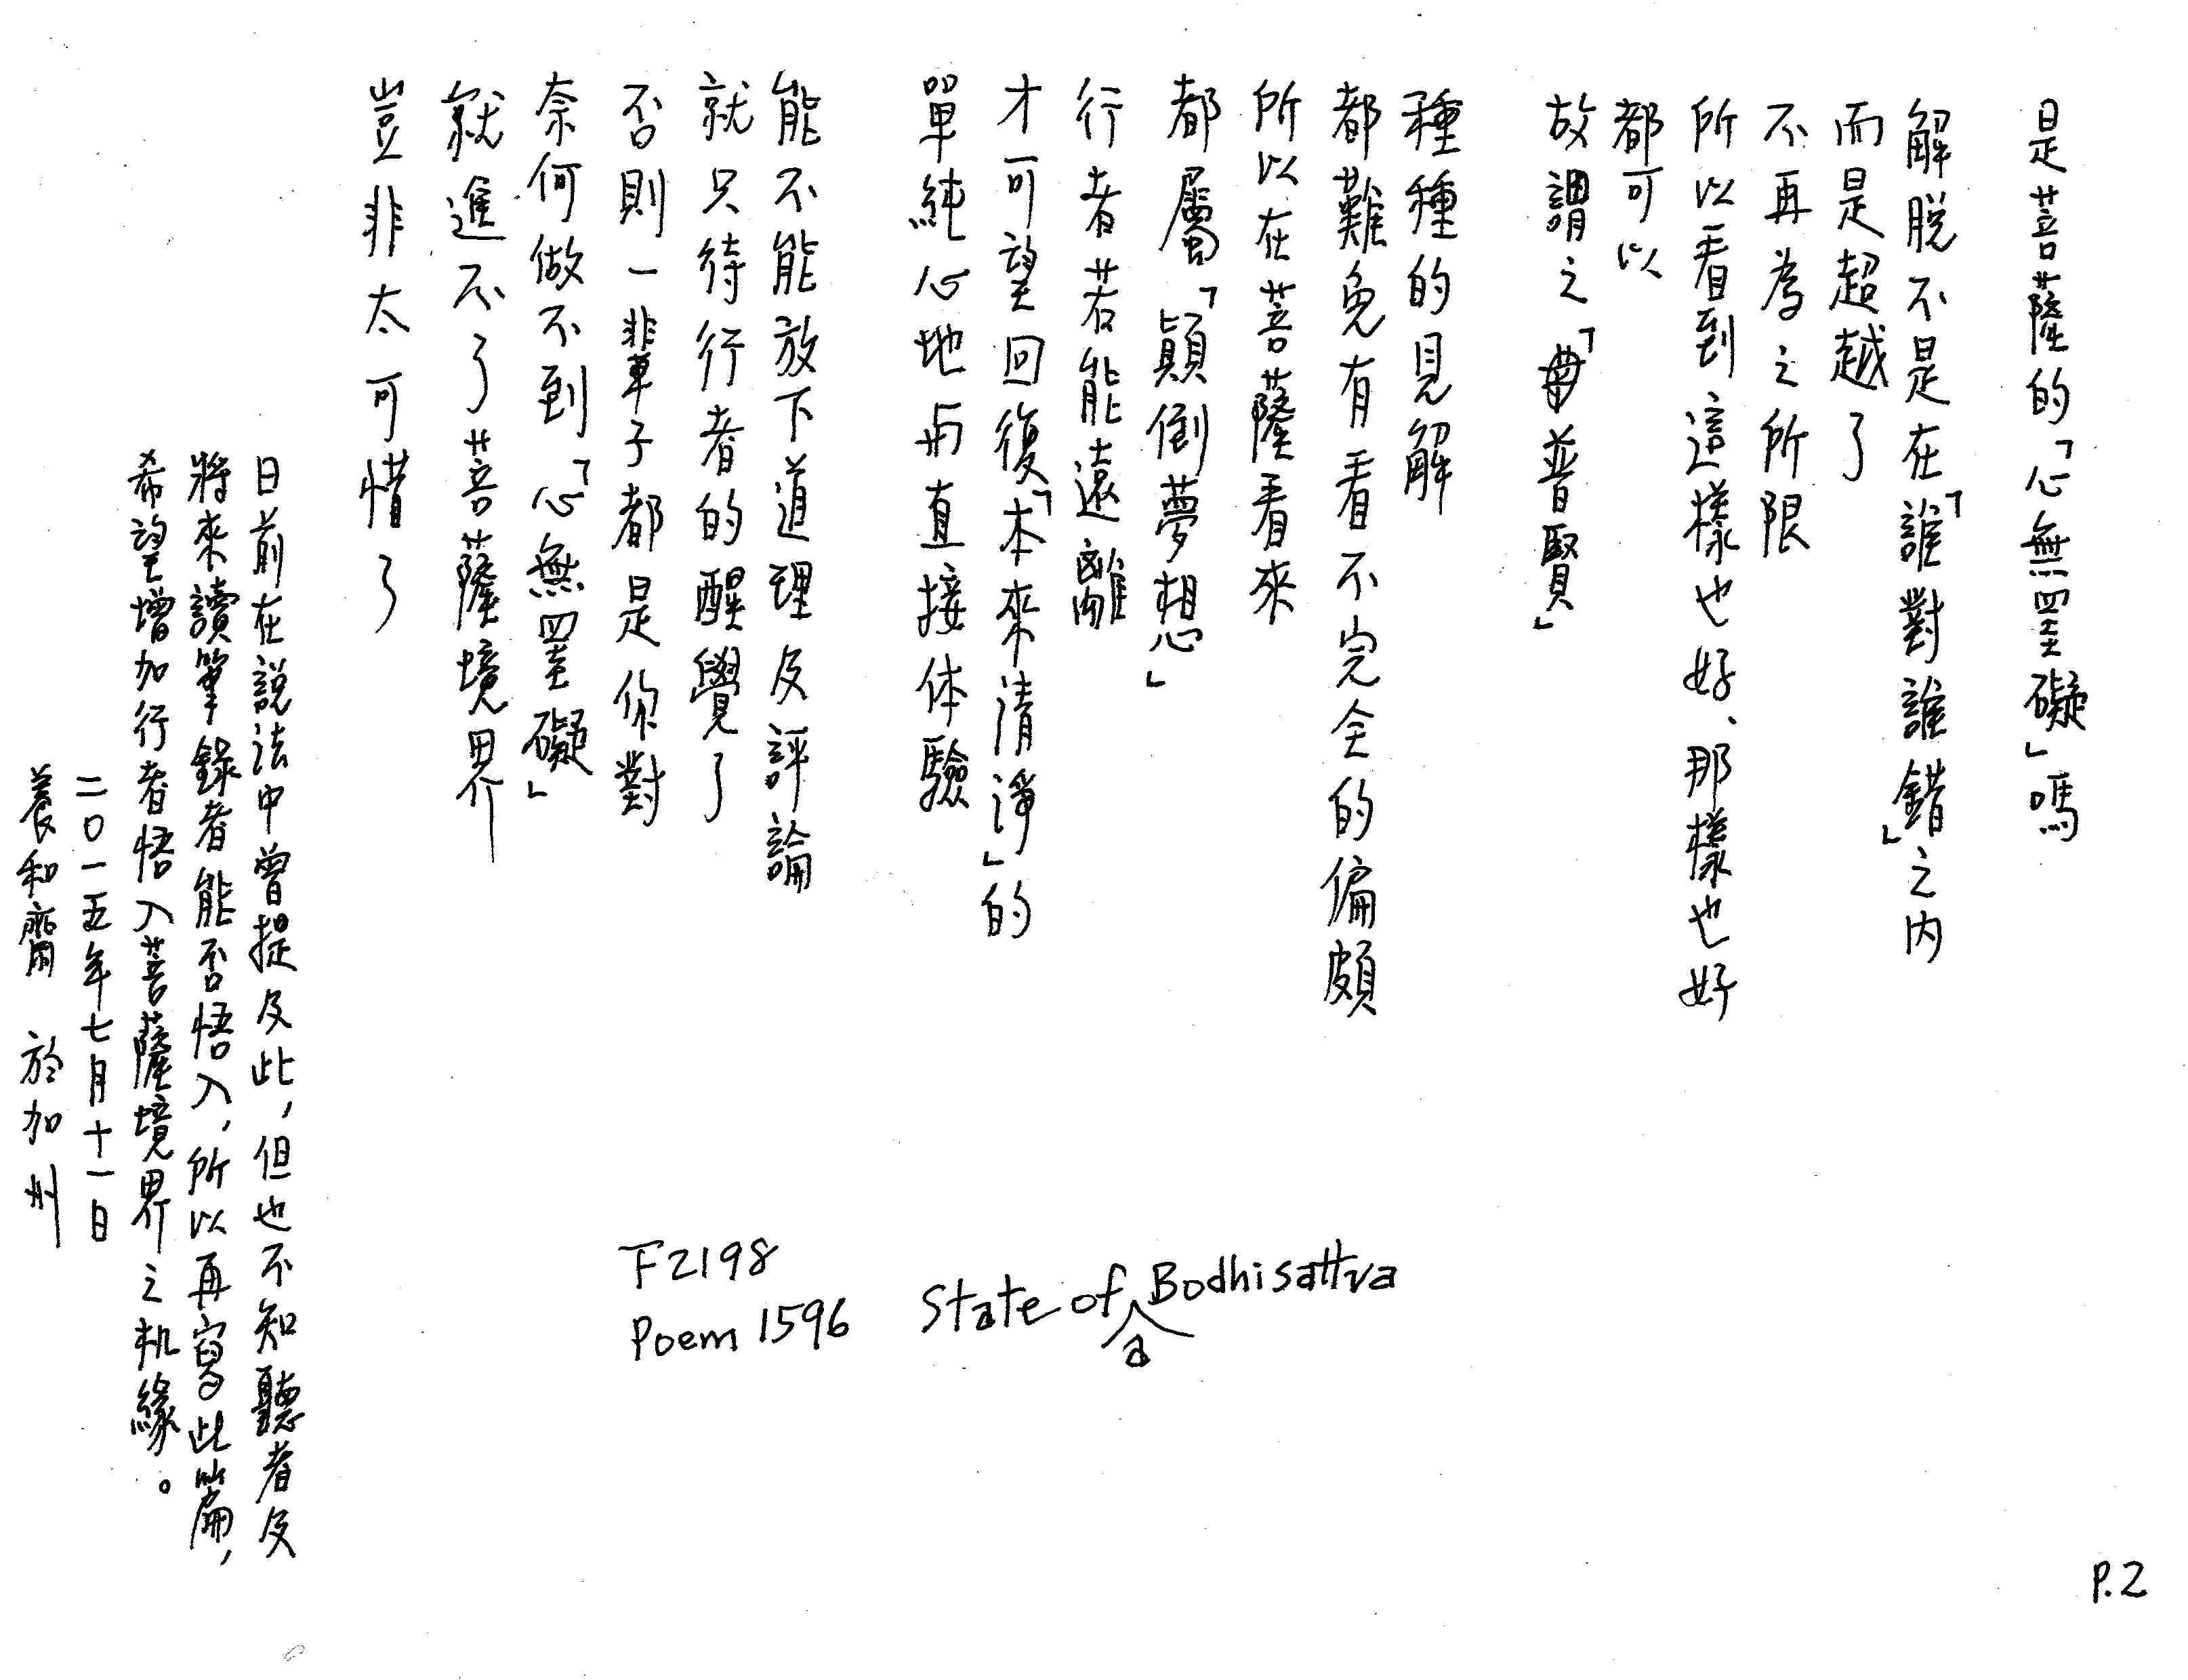 是菩薩的「心無罣礙」嗎
解脫不是在「誰對誰錯」之內
而是超越了
不再為之所限
所以看到這樣也好、那樣也好
都可以
故謂之「普賢」
種種的見解
都難免有看不完全的偏頗
所以在菩薩看來
都屬「顛倒夢想」
行者若能遠離
才可望回復「本來清淨」的
單純心地与直接体驗
能不能放下道理及評論
就只待行者的醒覺了
否則一輩子都是你對
奈何做不到「心無罣礙」
就進不了菩薩境界
豈非太可惜了
日前在說法中曾提及此，但也不知聽者及
將來讀筆錄者能否悟入，所以再寫此篇，
希望增加行者悟入菩薩境界之机緣。
二〇一五年七月十一日
養和齋 於加州
F2198
Poem 1596
State of a Bodhisattva
P.2